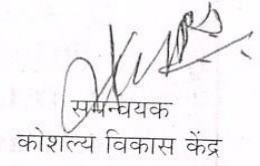 समन्वयक
कोशल्य विकास केंद्र